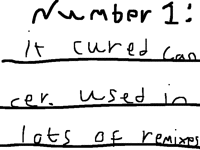 Number 1:
it cured can
cer. used in
lots of remixes